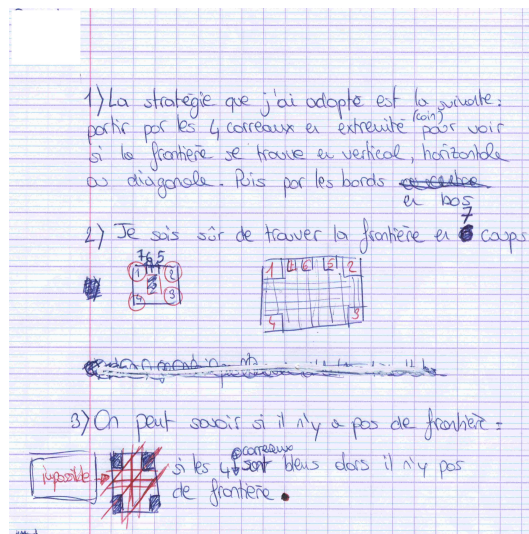 1) La stratégie que j'ai adopté est la suivante :
partir par les 4 carreaux en extremité (coin) pour voir
si la frontière se trouve en vertical, horizontale
ou diagonale. Puis par les bords
en bas
2) Je suis sûr de trouver la frontière en 7 coups
7 6 5
1 2
4 3
1 5 2
4 3
3) On peut savoir si il n'y a pas de frontière =
impossible
si les 4 carreaux sont bleus alors il n'y pas
de frontière.